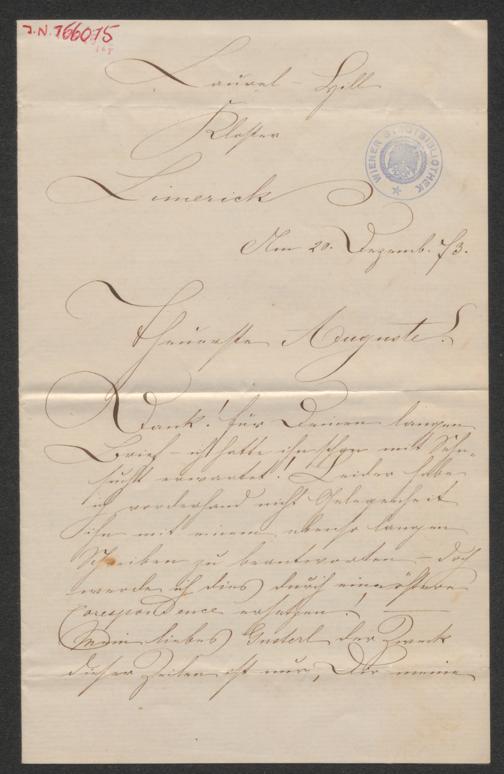 J.N. 166075
Laurel-Hill
Kloster
WIENER STADTBIBLIOTHEK
Limerick
Am 20. Dezemb. 73.
Theuerste Auguste!
Dank! für Deinen langen
Brief – ich hatte ihn schon mit Sehn-
sucht erwartet! Leider habe
ich vorderhand nicht Gelegenheit
ihn mit einem ebenso langen
Schreiben zu beantworten – doch
werde ich dies durch eine öftere
Corespondence ersetzen! –
Mein liebes Gusterl der Zweck
dieser Zeilen ist nur, Dir meine